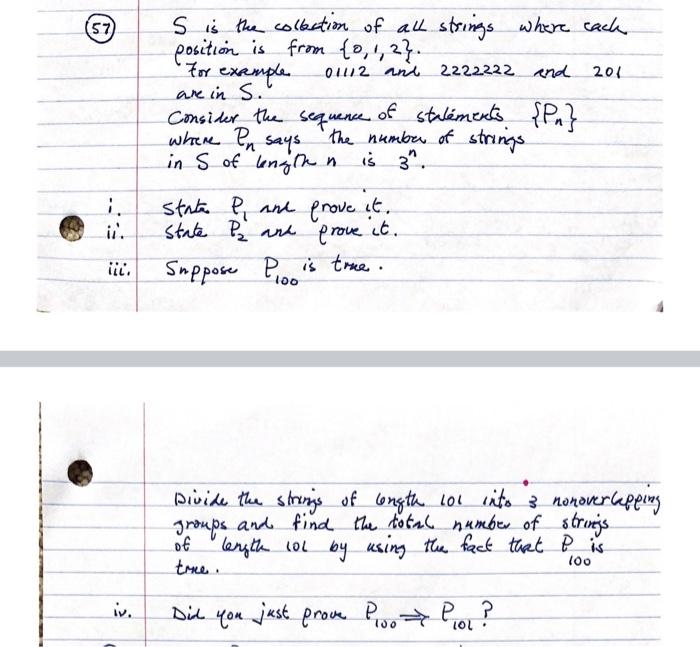 57 S is the collection of all strings where each
position is from {0,1,2}.
For example 01112 and 2222222 and 201
are in S.
Consider the sequence of statements {Pn}
where Pn says the number of strings
in S of length n is 3ⁿ.
i. State P1 and prove it.
ii. State P2 and prove it.
iii. Suppose P100 is true.
Divide the strings of length 101 into 3 nonoverlapping
groups and find the total number of strings
of length 101 by using the fact that P100 is
true.
iv. Did you just prove P100 → P101?